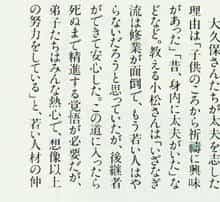 理由は「子供のころから祈禱に興味
があった」「昔、身内に太夫がいた」な
どなど。教える小松さんは「いざなぎ
流は修業が面倒で、もう若い人はや
らないだろうと思っていたが、後継者
ができて安心した。この道に入ったら
死ぬまで精進する覚悟が必要だが、
弟子たちはみんな熱心で、想像以上
の努力をしている」と、若い人材の伸